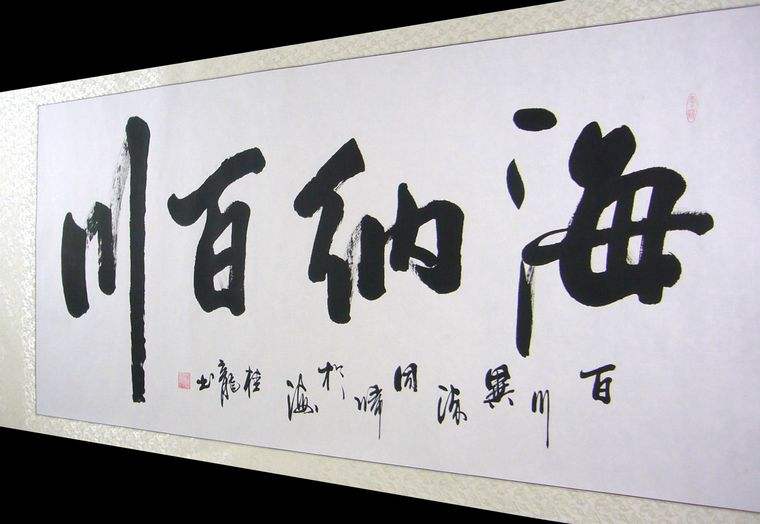 海納百川
百川異源同歸於海桂龍書